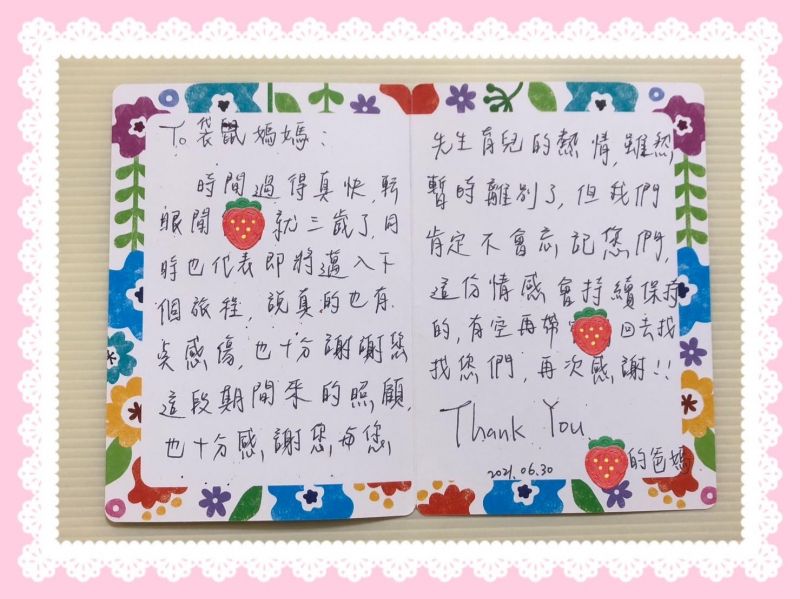 To 袋鼠媽媽：
時間過得真快，轉
眼間 就三歲了，同
時也代表即將邁入下
個旅程，說真的也有
點感傷，也十分謝謝您
這段期間來的照顧，
也十分感謝您与您
先生育兒的熱情，雖然
暫時離別了，但我們
肯定不會忘記您們，
這份情感會持續保持
的，有空再帶 回去找
找您們，再次感謝!!
Thank You
2021.06.30
的爸媽